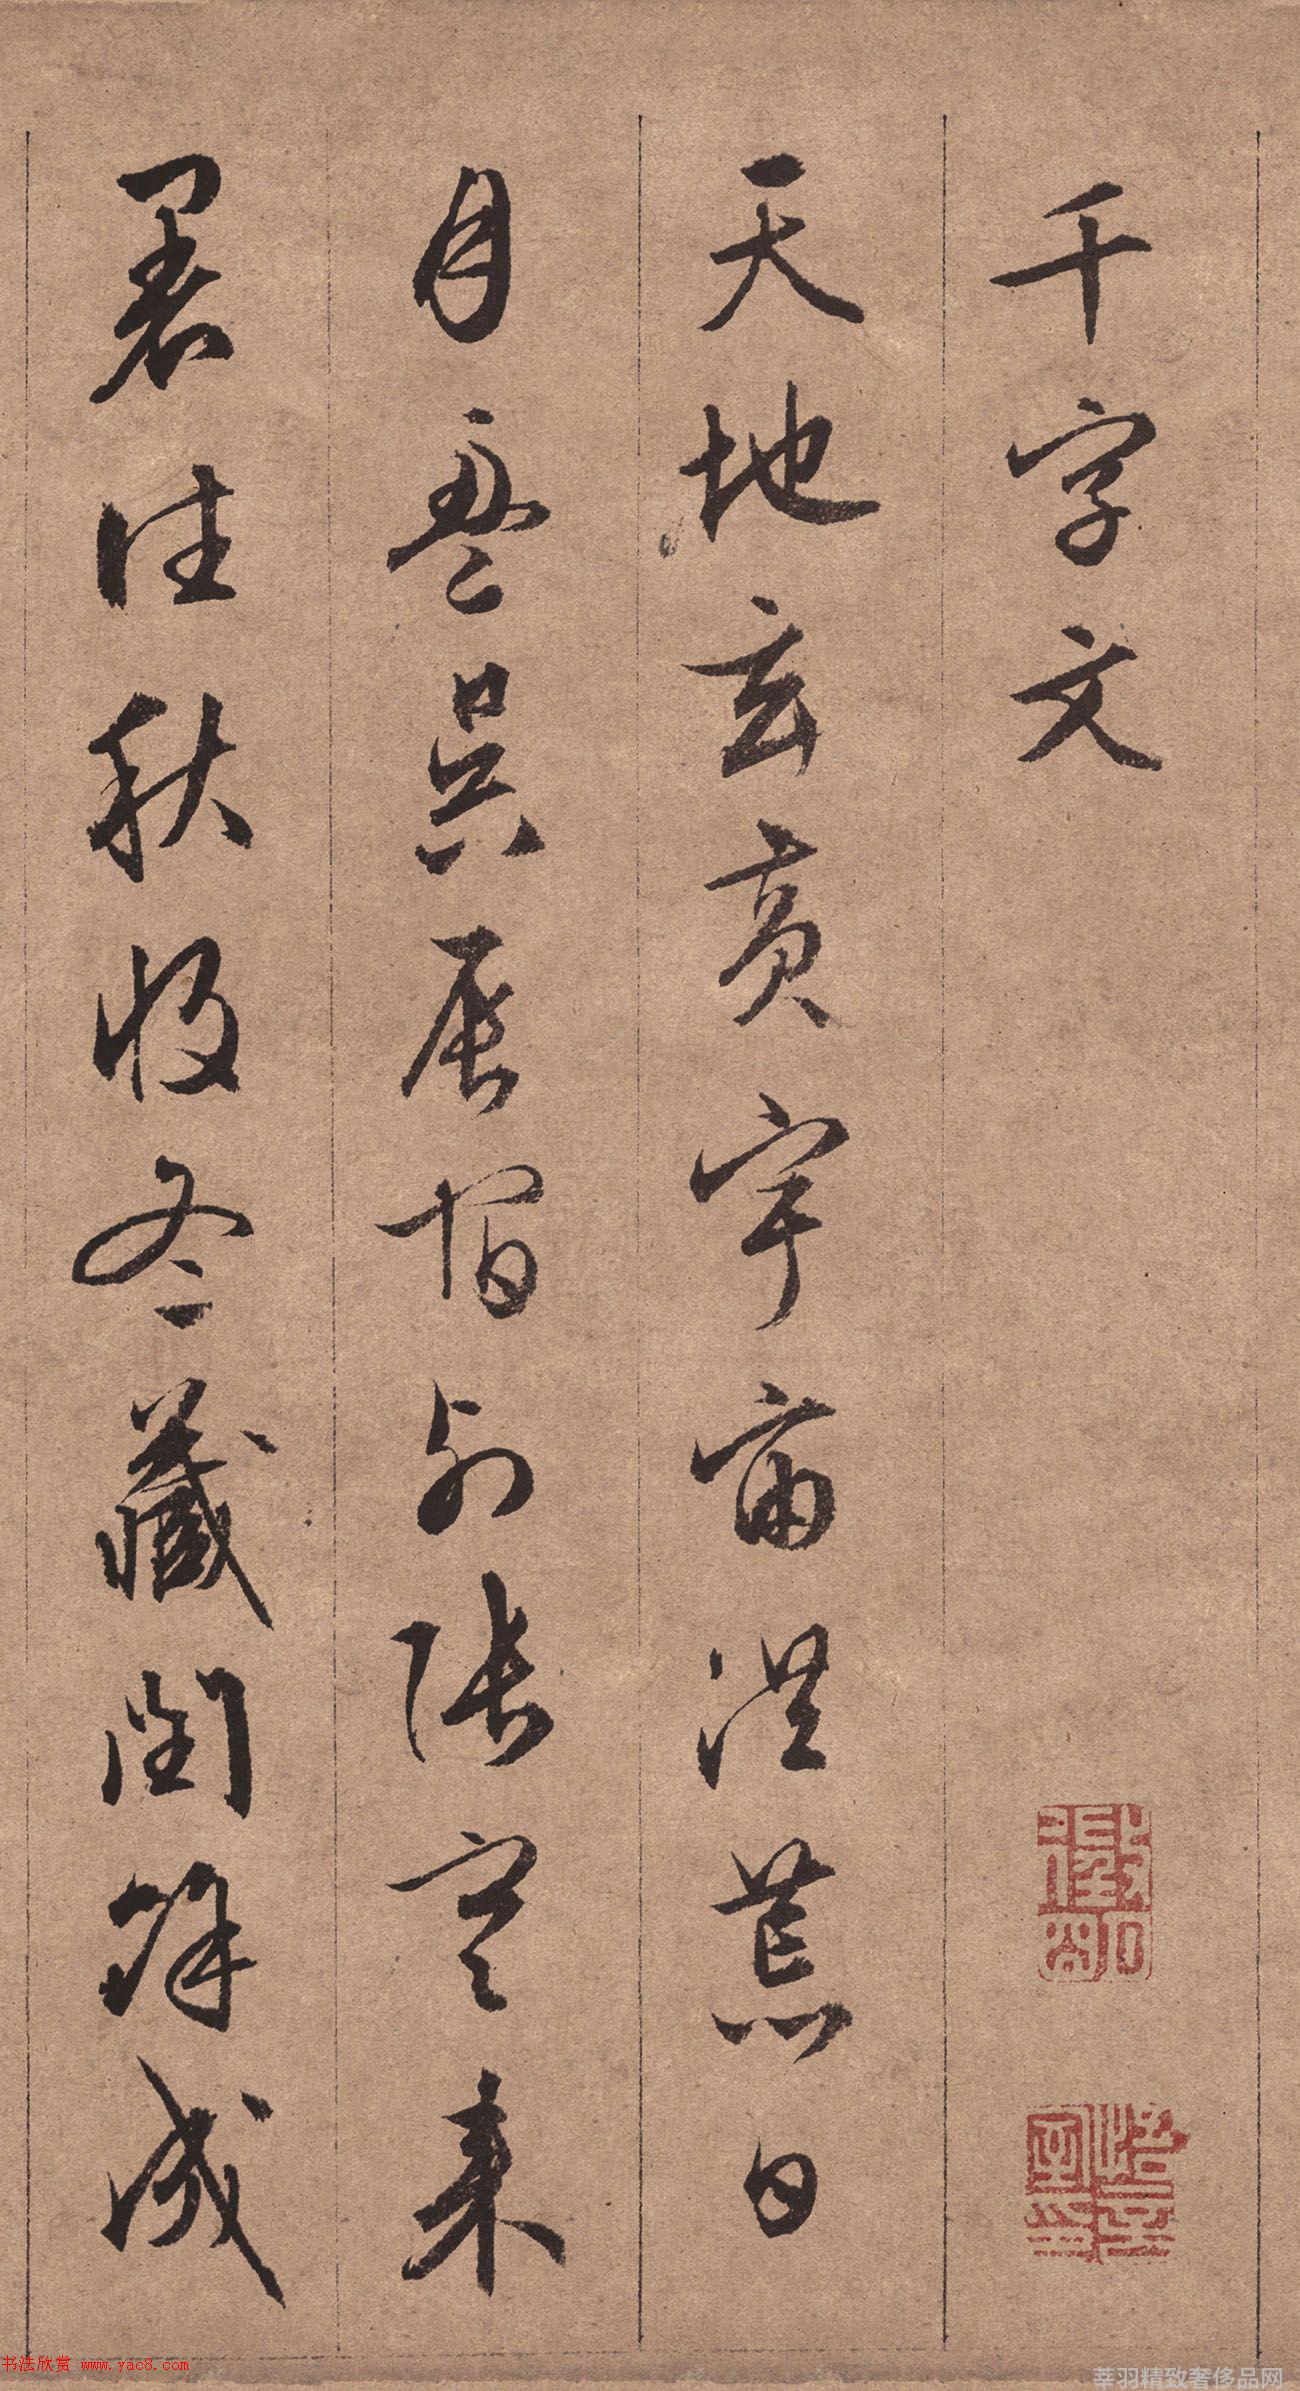 千字文
天地玄黃宇宙洪荒日
月盈昃辰宿列張寒來
暑往秋收冬藏閏餘成
书法欣赏 www.yac8.com
莘羽精致奢侈品网